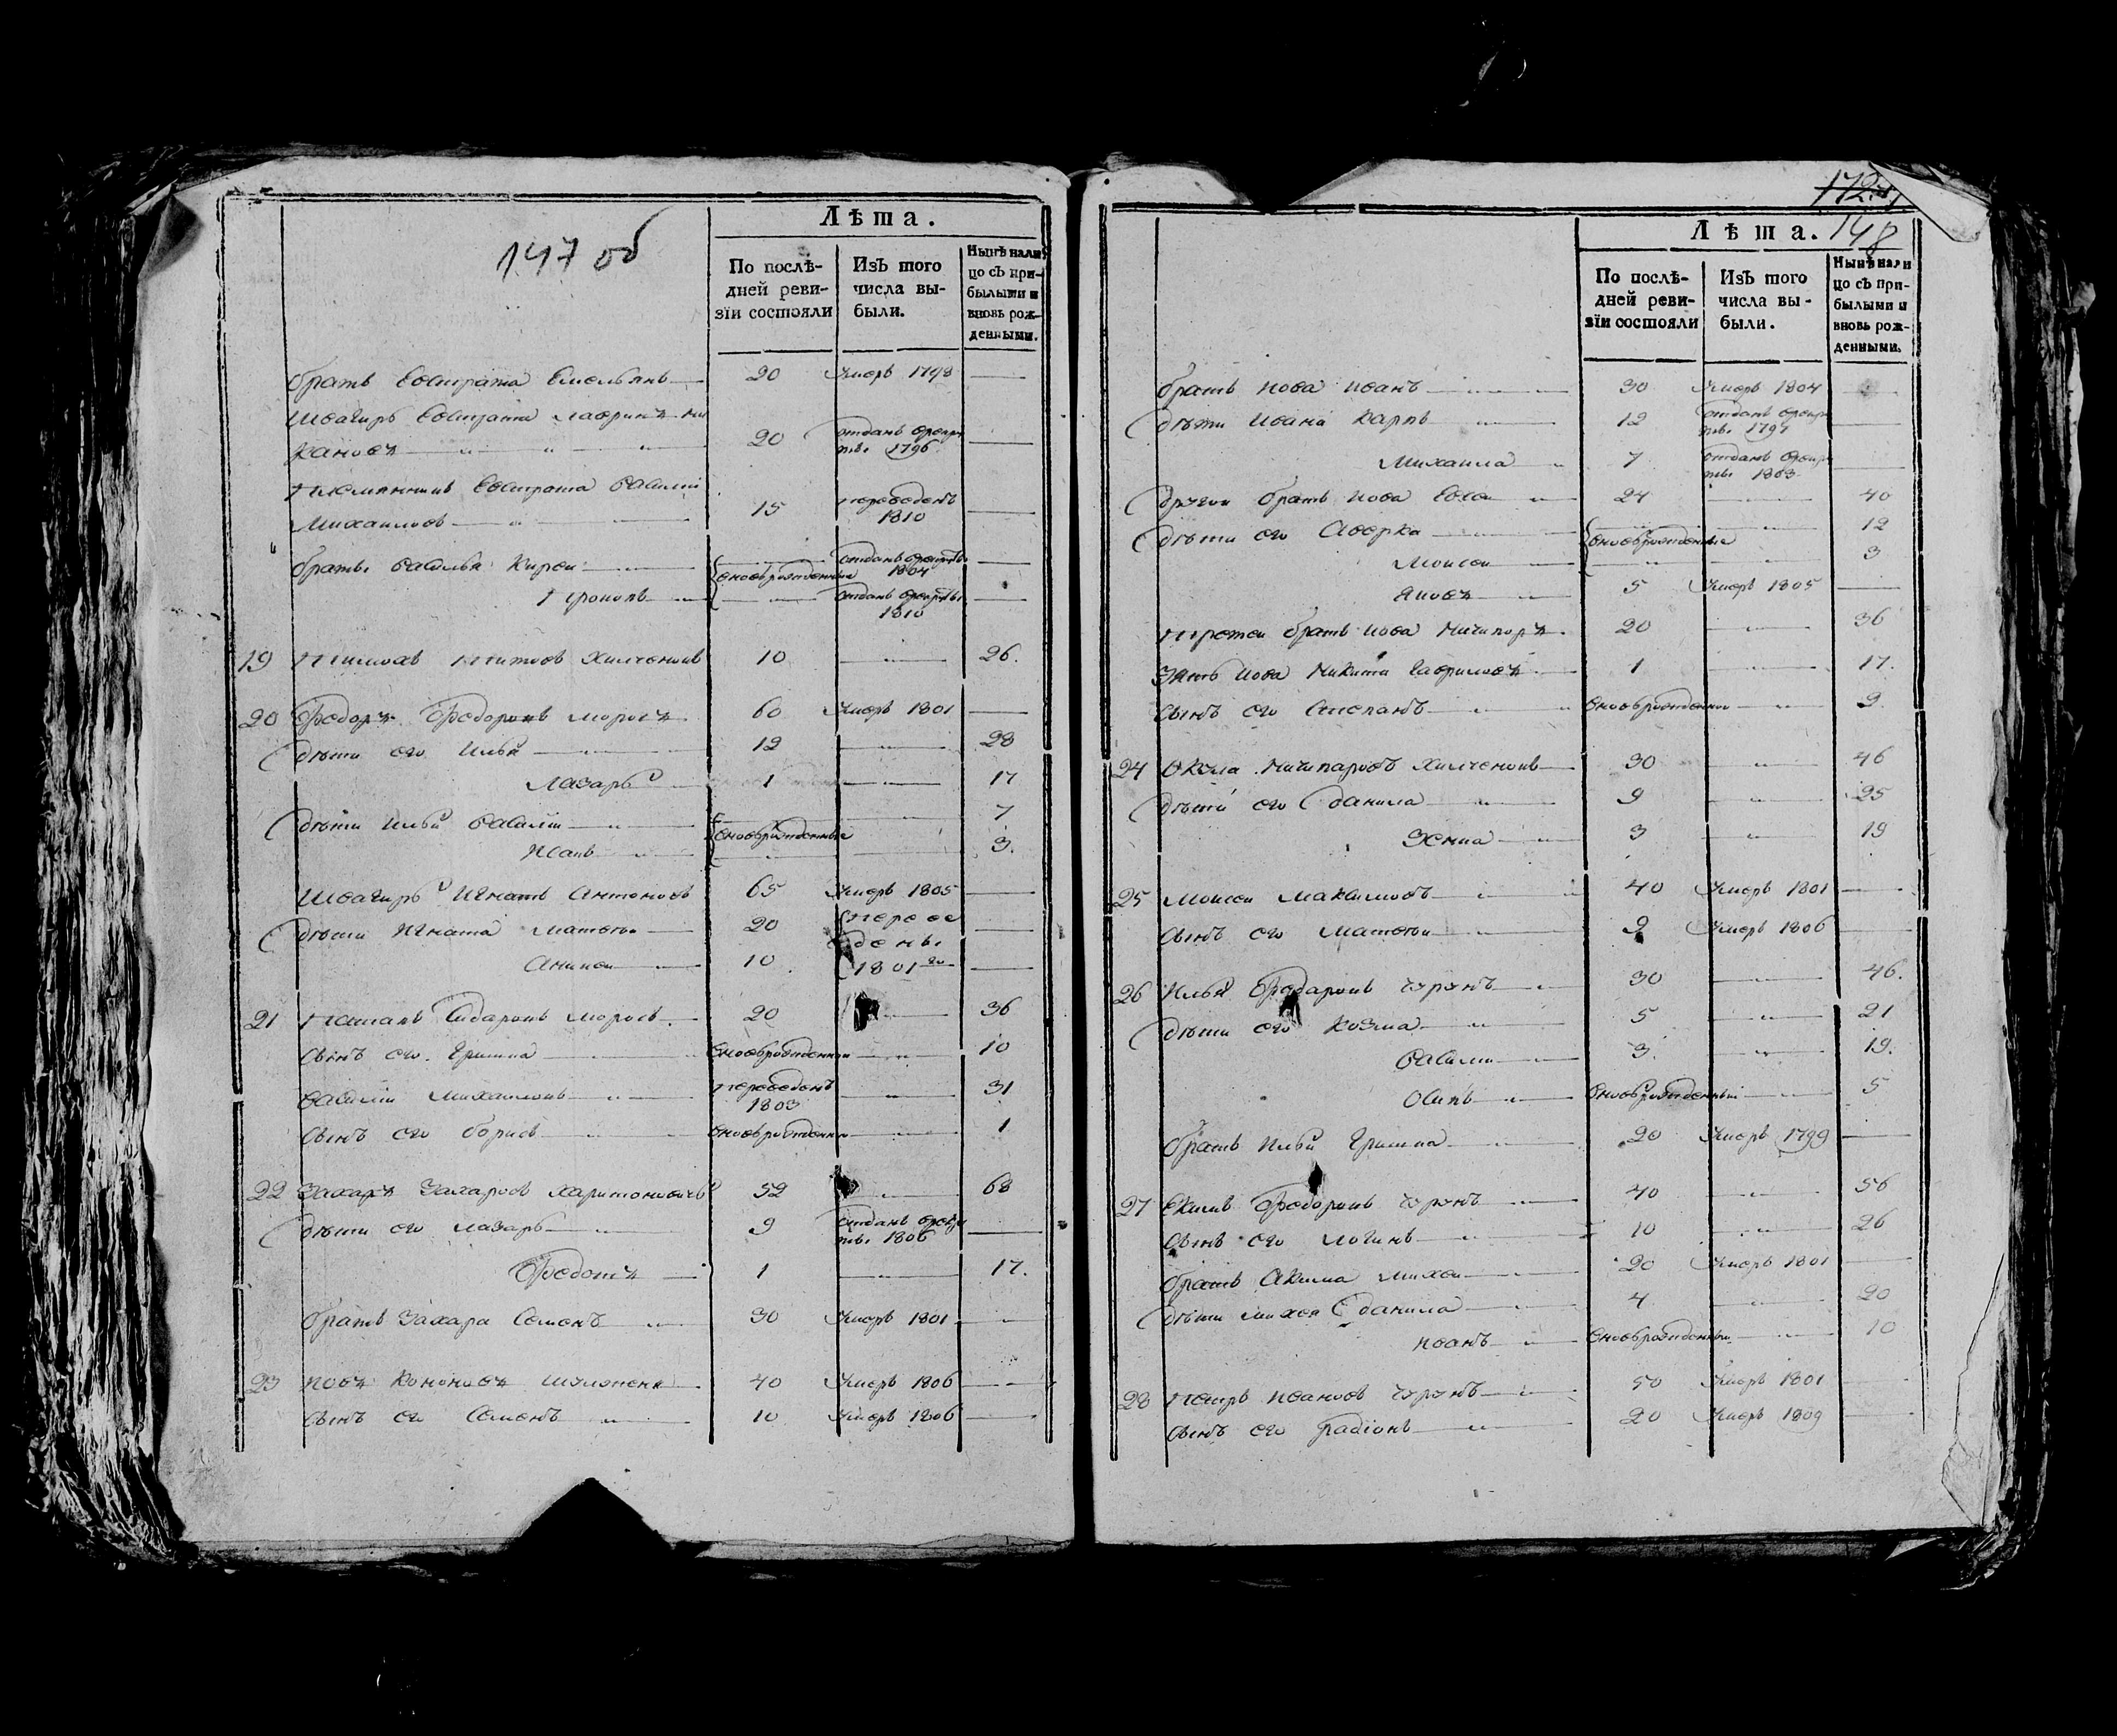 147 об
Лѣта.
По послѣ-
дней реви-
зїи состояли
Изъ того
числа вы-
были.
Нынѣ нали
цо съ при-
былыми и
вновь рож-
денными.
братъ Евстрата Емельянъ 20 Умеръ 1798
Швагиръ Евстрата Лавринъ
20 отданъ врекру
ты 1796
Племянникъ Евстрата Василий
Михайловъ 15 переведенъ
1810
братья Василья Кирей отданъ врекруты
1804
новорожденные
Прокопъ отданъ врекруты
1810
19 Тимохъ Титовъ 10 26.
20 Федоръ Федоровъ Морозъ 60 Умеръ 1801
дѣти его Илья 12 28
Лазарь 1 17
дѣти Ильи Василий 7
новорожденные
Исакъ 3.
Швагиръ Игнатъ Антоновъ 65 Умеръ 1805
дѣти Игната Матвѣй 20 переве
дены
Аникей 10 1801го
21 Сидаровъ Морозъ 20 36
сынъ его Гришка новорожденный 10
Василий Михайловъ переведенъ
1803 31
сынъ его Борисъ новорожденный 1
22 Захаръ Захаровъ Харитоновичъ 52 68
дѣти его Лазарь 9 отданъ врекру
ты 1806
Федотъ 1 17.
братъ Захара Семенъ 30 Умеръ 1801
23 Иовъ Кононовъ 40 Умеръ 1806
сынъ его Семенъ 10 Умеръ 1806
172
148
Лѣта.
По послѣ-
дней реви-
зїи состояли
Изъ того
числа вы-
были.
Нынѣ нали
цо съ при-
былыми и
вновь рож-
денными.
братъ Иова Иванъ 30 Умеръ 1804
дѣти Ивана Карпъ 12 отданъ врекру
ты 1797
Михайла 7 отданъ врекру
ты 1803
другой братъ Иова 24 40
дѣти его Аверка 12
новорожденные
Моисей 3
Яковъ 5 Умеръ 1805
третей братъ Иова Ничипоръ 20 36
Зять Иова Микита Гавриловъ 1 17.
сынъ его Степанъ новорожденной 2
24 Ничипаровъ 30 46
дѣти его Данила 9 25
3 19
25 Моисей Макаимовъ 40 Умеръ 1801
сынъ его Матвѣй 9 Умеръ 1806
26 Илья Федаровъ Чурунъ 30 46.
дѣти его Козма 5 21
Василий 3. 19.
Осипъ новорожденный 5
братъ Ильи Гришка 20 Умеръ 1799
27 Екимъ Федоровъ Чурунъ 40 56
сынъ его Логинъ 10 26
братъ Акима Михей 20 Умеръ 1801
дѣти Михея Данила 4 20
Иванъ новорожденный 10
28 Петръ Ивановъ Чурунъ 50 Умеръ 1801
сынъ его Радіонъ 20 Умеръ 1809